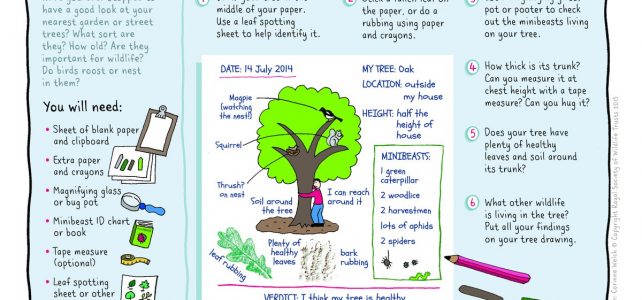 have a good look at your
nearest garden or street
trees? What sort are
they? How old? Are they
important for wildlife?
Do birds roost or nest
in them?
You will need:
Sheet of blank paper
and clipboard
Extra paper
and crayons
Magnifying glass
or bug pot
Minibeast ID chart
or book
Tape measure
(optional)
Leaf spotting
sheet or other
middle of your paper.
Use a leaf spotting
sheet to help identify it.
the paper, or do a
rubbing using paper
and crayons.
pot or pooter to check
out the minibeasts living
on your tree.
4 How thick is its trunk?
Can you measure it at
chest height with a tape
measure? Can you hug it?
5 Does your tree have
plenty of healthy
leaves and soil around
its trunk?
6 What other wildlife
is living in the tree?
Put all your findings
on your tree drawing.
DATE: 14 July 2014
MY TREE: Oak
LOCATION: outside
my house
HEIGHT: half the
height of
house
Magpie
(watching
the nest!)
Squirrel
Thrush?
on nest
Soil around
the tree
I can reach
around it
MINIBEASTS:
1 green
caterpillar
2 woodlice
2 harvestmen
lots of aphids
2 spiders
leaf rubbing
Plenty of
healthy
leaves
bark
rubbing
VERDICT: I think my tree is healthy
Corinne Welch © Copyright Royal Society of Wildlife Trusts 2015